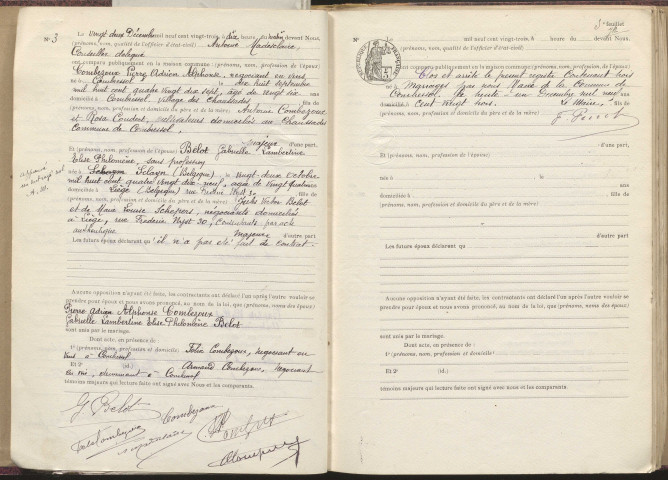 N° 3
Le vingt deux Décembre mil neuf cent vingt-trois, à dix heures du matin devant Nous,
(prénoms, nom, qualité de l'officier d'état-civil) Antoine
Conseiller délégué
ont comparu publiquement en la maison commune (prénoms, nom, profession de l'époux)
Combezoux Pierre Adrien Alphonse, négociant en vins
né à Combressol le dix huit septembre
mil huit cent quatre vingt dix sept, âgé de vingt six ans
domicilié à Combressol, village des Chaussades fils de
(prénoms, nom, profession et domicile du père et de la mère) Antoine Combezoux
et Rosa Coudert, cultivateurs domiciliés au Chaussades
Commune de Combressol.
majeur d'une part,
Et (prénoms, nom, profession de l'épouse) Belot Gabrielle Lambertine
Elise Philomène, sans profession
née à Sclayn (Belgique), le vingt deux octobre
mil huit cent quatre vingt dix-neuf, âgée de vingt quatre ans
domiciliée à Liège (Belgique) rue fille de
(prénoms, nom, profession et domicile du père et de la mère) Victor Belot
et de Louise négociants domiciliés
à Liège, rue 30, consentants par acte
authentique majeure d'autre part
Les futurs époux déclarent qu'il n'a pas été fait de contrat.
Aucune opposition n'ayant été faite, les contractants ont déclaré l'un après l'autre vouloir se
prendre pour époux et nous avons prononcé, au nom de la loi, que (prénoms, noms des époux)
Pierre Adrien Alphonse Combezoux
Gabrielle Lambertine Elise Philomène Belot
sont unis par le mariage.
Dont acte, en présence de
1° (prénoms, nom, profession et domicile) Félix Combezoux, négociant en
vins à Combressol
Et 2° (id.) Armand Combezoux, négociant
en vins, demeurant à Combressol
témoins majeurs qui lecture faite ont signé avec Nous et les comparants.
G Belot
Combezoux
3e feuillet
N°
mil neuf cent vingt-trois, à heure du devant Nous,
(prénoms, nom, qualité de l'officier d'état-civil)
ont comparu publiquement en la maison commune (prénoms, nom, profession de l'époux)
Clos et arrêté le présent registre contenant trois
mariages par nous Maire de la Commune de
Combressol le trente un Décembre mil neuf
cent vingt trois.
Le Maire,
fils de
(prénoms, nom, profession et domicile du père et de la mère)
d'une part,
Et (prénoms, nom, profession de l'épouse)
née à le
ans
domiciliée à fille de
(prénoms, nom, profession et domicile du père et de la mère)
d'autre part
Les futurs époux déclarent qu
Aucune opposition n'ayant été faite, les contractants ont déclaré l'un après l'autre vouloir se
prendre pour époux et nous avons prononcé, au nom de la loi, que (prénoms, noms des époux)
sont unis par le mariage.
Dont acte, en présence de
1° (prénoms, nom, profession et domicile)
Et 2° (id.)
témoins majeurs qui lecture faite ont signé avec Nous et les comparants.